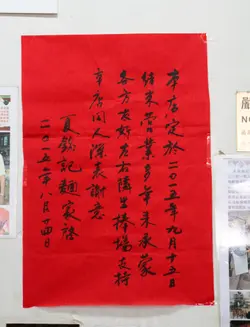 本店定於二〇一五年九月十五日
結束營業多年来承蒙
各方友好左右隣里捧場支持
本店同人深表謝意
夏銘記麵家啓
二〇一五年八月廿四日
NO